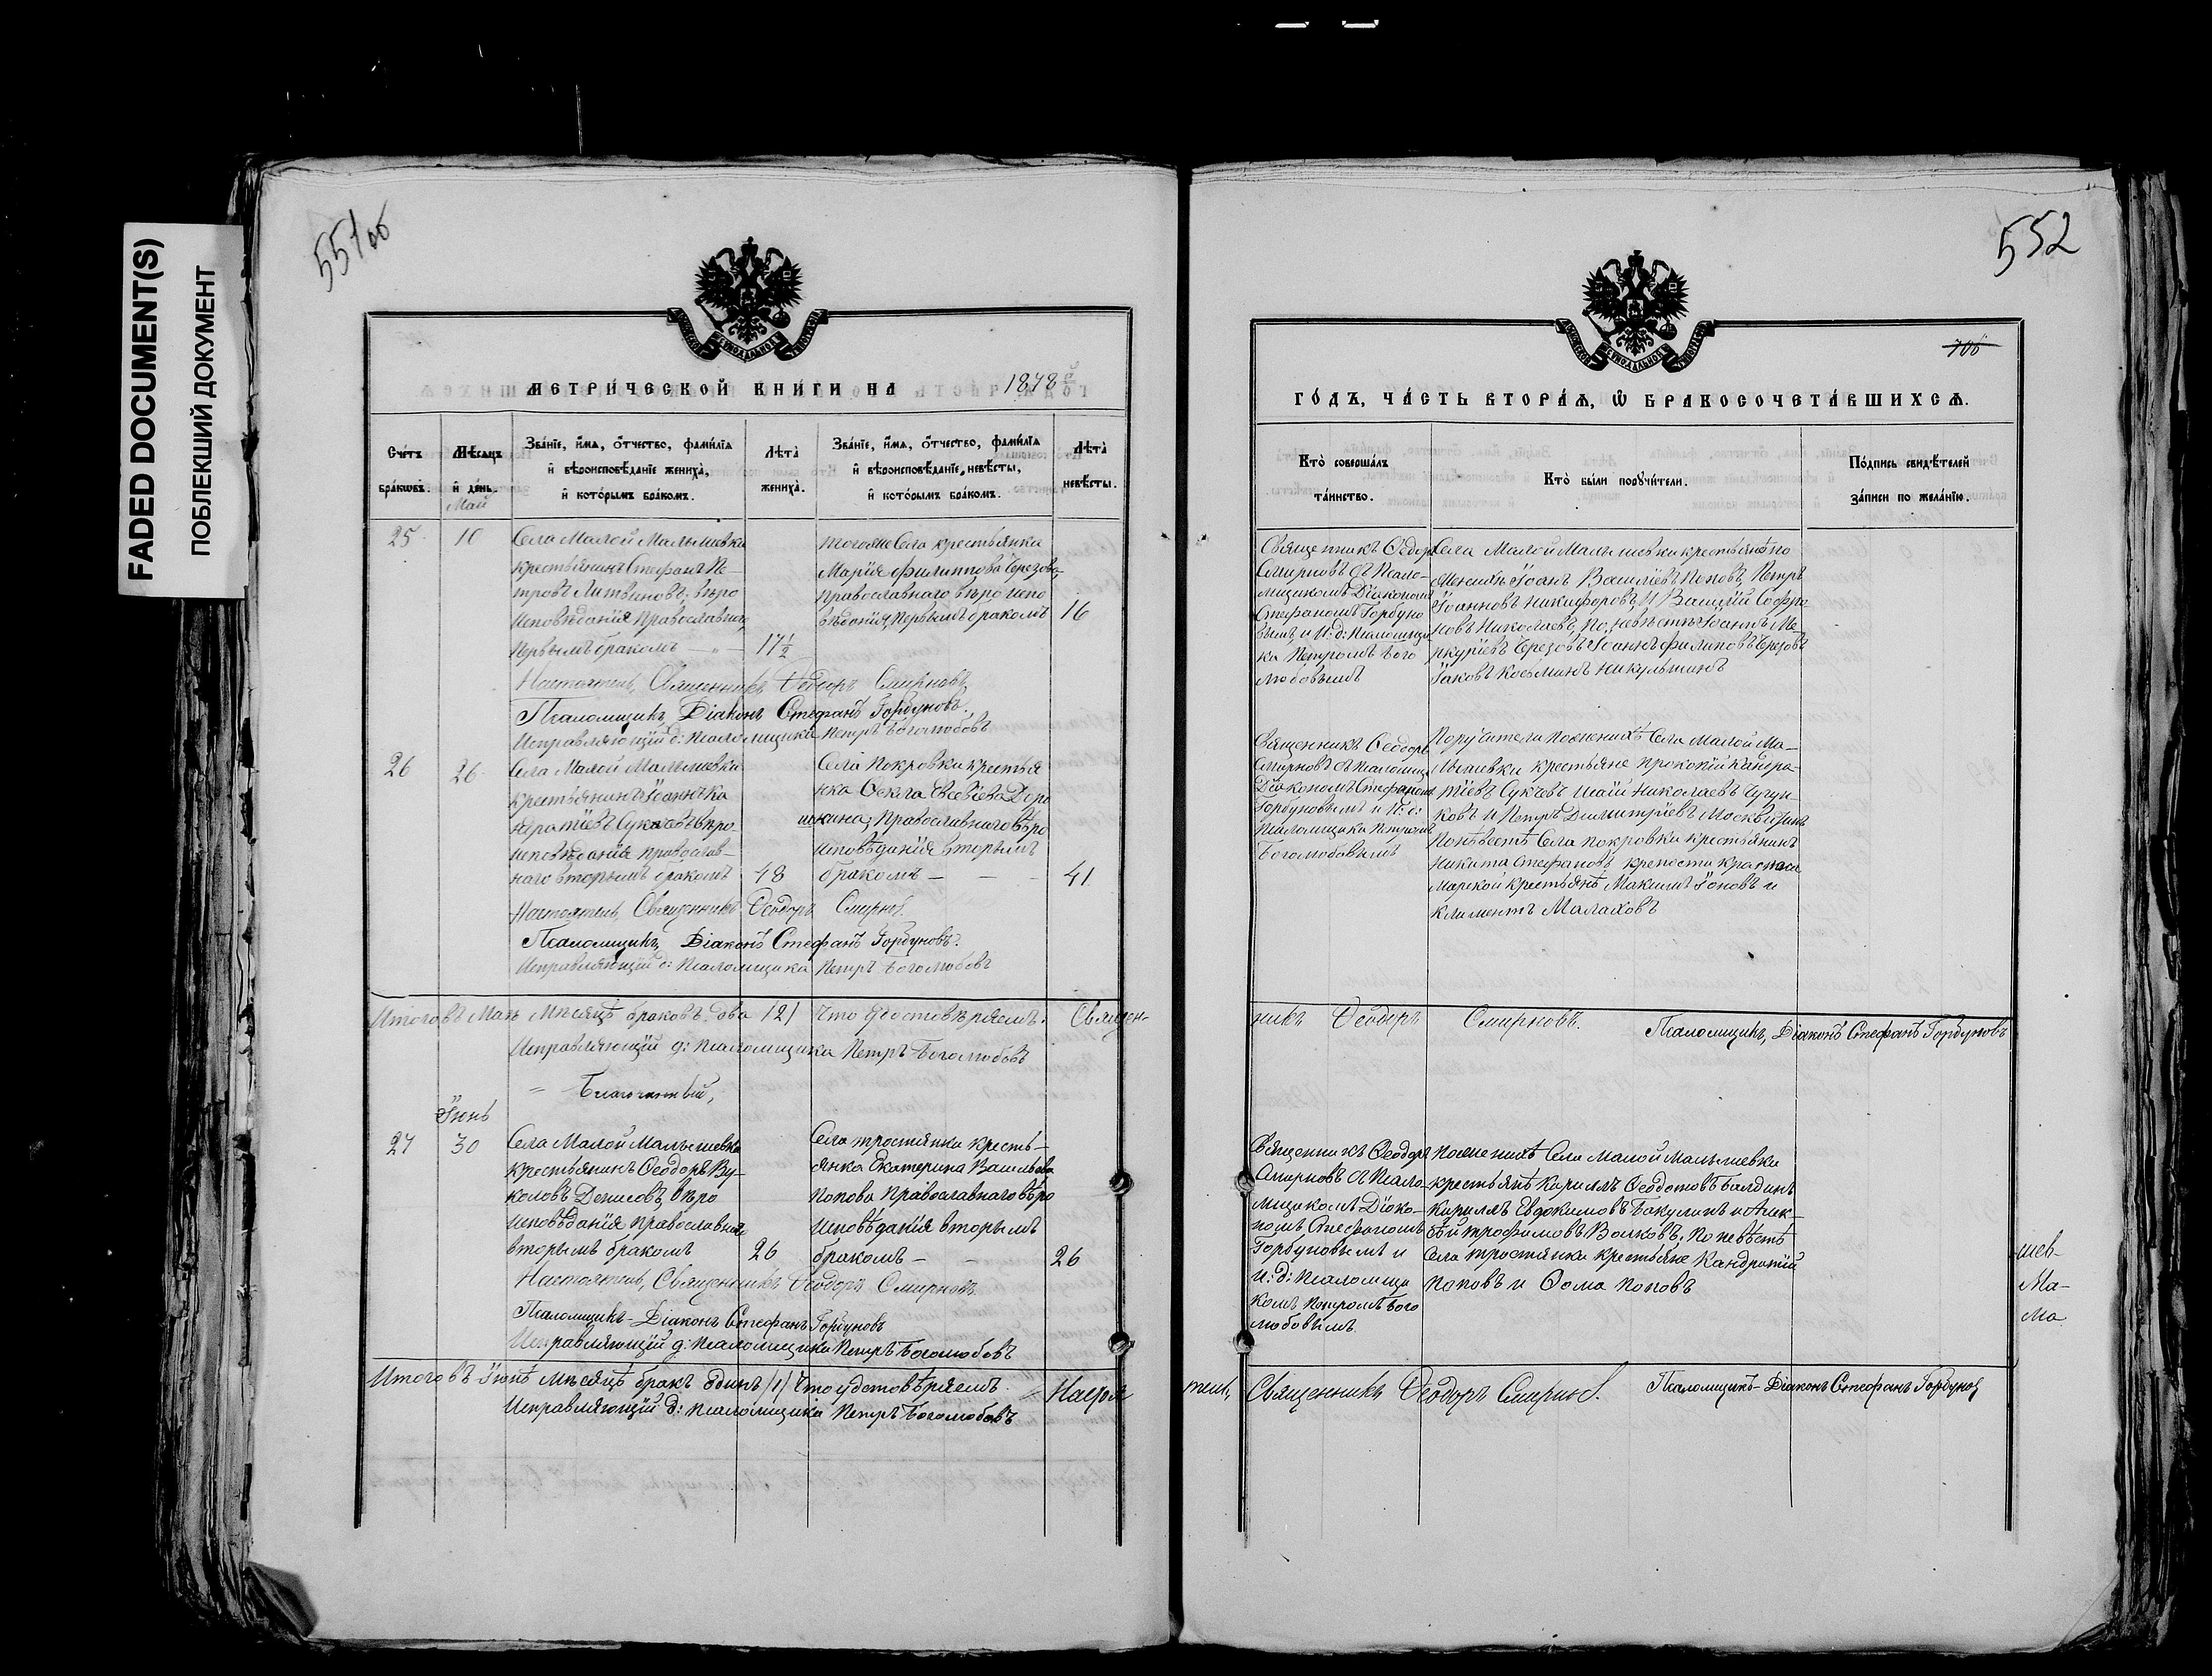 FADED DOCUMENT(S)
ПОБЛЕКШИЙ ДОКУМЕНТ
551об
МЕТРИ́ЧЕСКОЙ КНИ́ГИ НА 1878 й
Сче́тъ бра́кωвъ.
Мѣ́сяцъ и҆ де́нь.
Зва́нїе, и҆́мѧ, ѻ҆́тчество, фами́лїѧ и҆ вѣроисповѣ́данїе жениха̀, и҆ кото́рымъ бра́комъ.
Лѣта̀ жениха̀.
Зва́нїе, и҆́мѧ, ѻ҆́тчество, фами́лїѧ и҆ вѣроисповѣ́данїе невѣ́сты, и҆ кото́рымъ бра́комъ.
Лѣта̀ невѣ́сты.
Май
25
10
Села Малой Малышевки
крестьянинъ Стефанъ Пе-
тровъ Литвиновъ, вѣро
исповѣданія православнаго,
первымъ бракомъ — " —
17½
тогоже Села крестьянка
Марія Филиппова Черезова,
православнаго вѣро испо
вѣданія, первымъ бракомъ
16
Настоятель, Священникъ Ѳеодоръ Смирновъ.
Псаломщикъ, Діаконъ Стефанъ Горбуновъ.
Исправляющій д: псаломщика Петръ Боголюбовъ
26
26
Села Малой Малышевки
крестьянинъ Іоаннъ Ка
ндратіевъ Сукачевъ вѣро-
исповѣданія православ-
наго вторымъ бракомъ
48
Села Покровки крестья
нка Ѳекла Евсевіева Доро
шкина, Православнаго вѣро
исповѣданія вторымъ
бракомъ — — -
41
Настоятель, Священникъ Ѳеодоръ Смирнов.
Псаломщикъ, Діаконъ Стефанъ Горбуновъ.
Исправляющій д: псаломщика Петръ Боголюбовъ
Итого въ Маѣ мѣсяцѣ браковъ два /2/ Что удостовѣряемъ. Священ-
Исправляющій д: псаломщика Петръ Боголюбовъ
Благочинный,
Іюнь
27
30
Села Малой Малышевки
крестьянинъ Ѳеодоръ Ву-
коловъ Денисовъ, вѣро
исповѣданія православнаго
вторымъ бракомъ
26
Села тростянки кресть-
янка Екатерина Васильева
попова православнаго вѣро
исповѣданія вторымъ
бракомъ — -
26
Настоятель, Священникъ Ѳеодоръ Смирновъ.
Псаломщикъ-Діаконъ Стефанъ Горбуновъ
Исправляющій д: псаломщика Петръ Боголюбовъ
Итого въ Іюнѣ мѣсяцѣ бракъ одинъ /1/ Что удстовѣряемъ. Настоя
Исправляющій д: псаломщика Петръ Боголюбовъ
552
706
ГО́ДЪ, ЧА́СТЬ ВТОРА́Ѧ, Ѽ БРАКОСОЧЕТА́ВШИХСѦ.
Кто̀ соверша́лъ та́инство.
Кто̀ бы́ли порꙋчи́тели.
По́дпись свидѣ́телей за́писи по жела́нїю.
Священникъ Ѳеодоръ
Смирновъ съ Псало-
мщикомъ Діакономъ
Стефаномъ Горбуно
вымъ и И: д: Псаломщи
ка Петромъ Бого
любовымъ
Села Малой Малышевки крестьянѣ по
женихѣ Іоанъ Василіевъ Поповъ, Петръ
Іоанновъ Никифоровъ, И Василій Софро
новъ Николаевъ, По невѣстѣ Іоаннъ Ме-
ркуріевъ Черезовъ Іоаннъ Филиповъ Черезовъ
Іаковъ Косьминъ Никульшинъ
Священникъ Ѳеодоръ
Смирновъ съ Псаломщи
Діакономъ Стефаномъ
Горбуновымъ и И: д:
Псаломщика Петромъ
Боголюбовымъ
Поручители по женихѣ Села Малой Ма-
лышевки крестьяне Прокопій Кандра-
тіевъ Сукачевъ Николаевъ Чугун-
ковъ и Петръ Димитріевъ Москвитинъ
Поневѣстѣ Села Покровки крестьянинъ
Никита Стефановъ крепости красноса
марской крестьянѣ Максимъ Іоновъ и
Климентъ Малаховъ
никъ Ѳеодоръ Смирновъ. Псаломщикъ, Діаконъ Стефанъ Горбуновъ
Священникъ Ѳеодоръ
Смирновъ съ Псало-
мщикомъ Діако-
номъ Стефаномъ
Горбуновымъ и
И: д: псаломщи
комъ Петромъ Бого
любовымъ.
Поженихѣ Села Малой Малышевки
крестьянѣ Кариллъ Ѳеодотовъ Балдинъ
Кириллъ Евдокимовъ Бакулинъ и Алек-
сѣй трофимовъ Волковъ. По невѣстѣ
Села тростянки крестьяне Кандратій
поповъ и Ѳома поповъ
шев-
Ма-
Ма
тель, Священникъ Ѳеодоръ Смирнов. Псаломщикъ-Діаконъ Стефанъ Горбунов